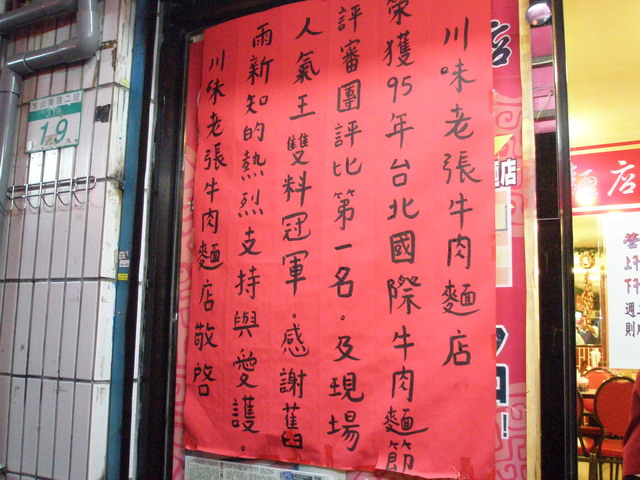 川味老張牛肉麵店
榮獲95年台北國際牛肉麵節
評審團評比第一名。及現場
人氣王雙料冠軍。感謝舊
雨新知的熱烈支持與愛護。
川味老張牛肉麵店敬啓
19
店
麵店
營
上午
下午
週二